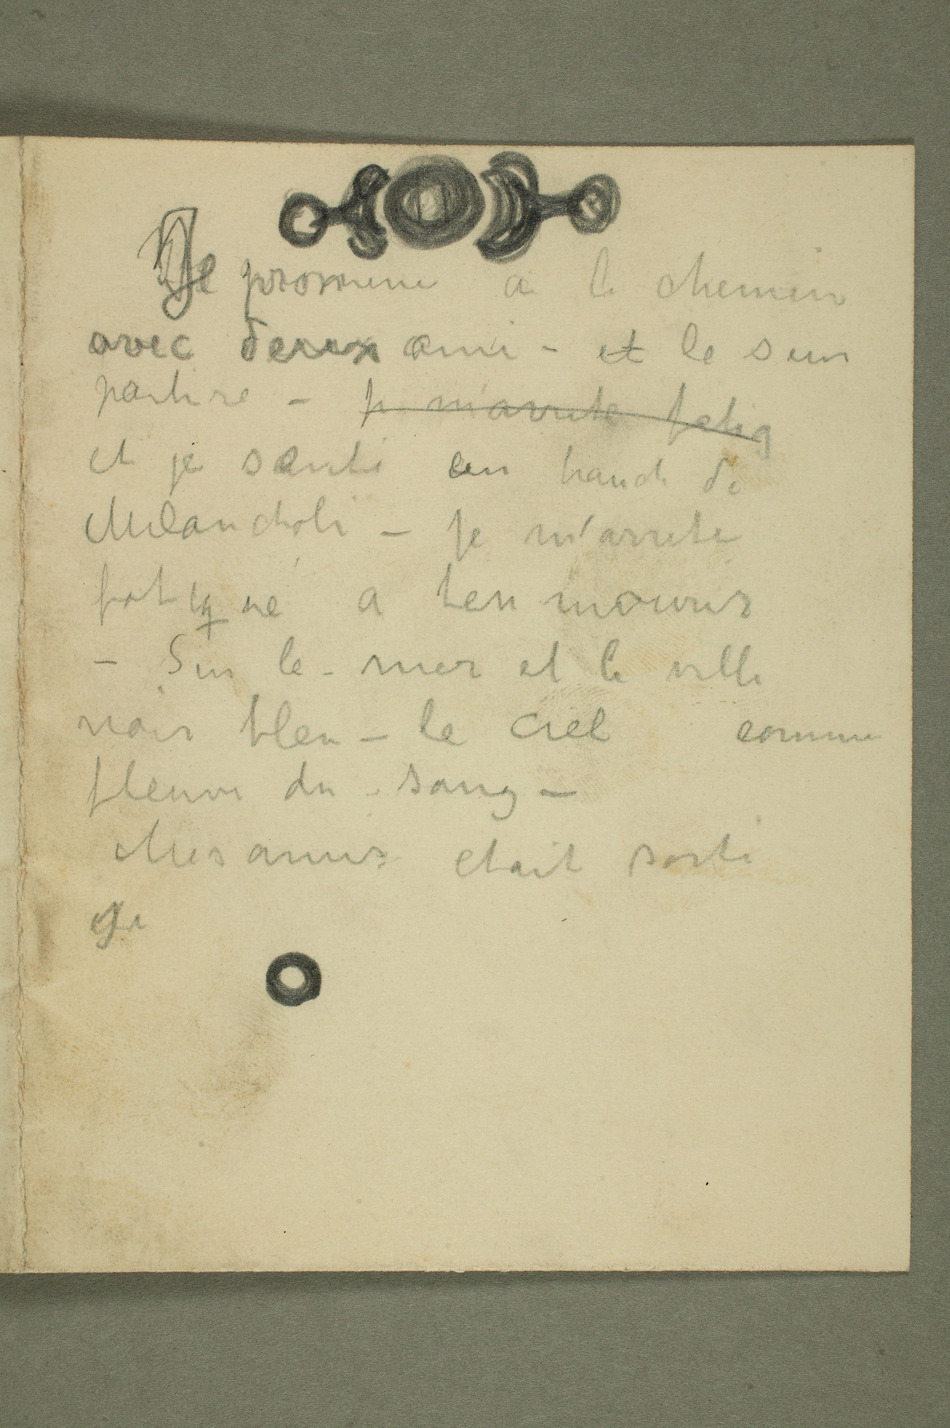 Je promene a le chemin
avec deux ami – et le sun
partire – je m'arrete fatig
et je senti un de
Melancholi – je m'arrete
fatigué a mourir
– Sur le mer et le ville
noir bleu – le ciel comme
fleuve du sang –
Mes amis etait sorti
Je